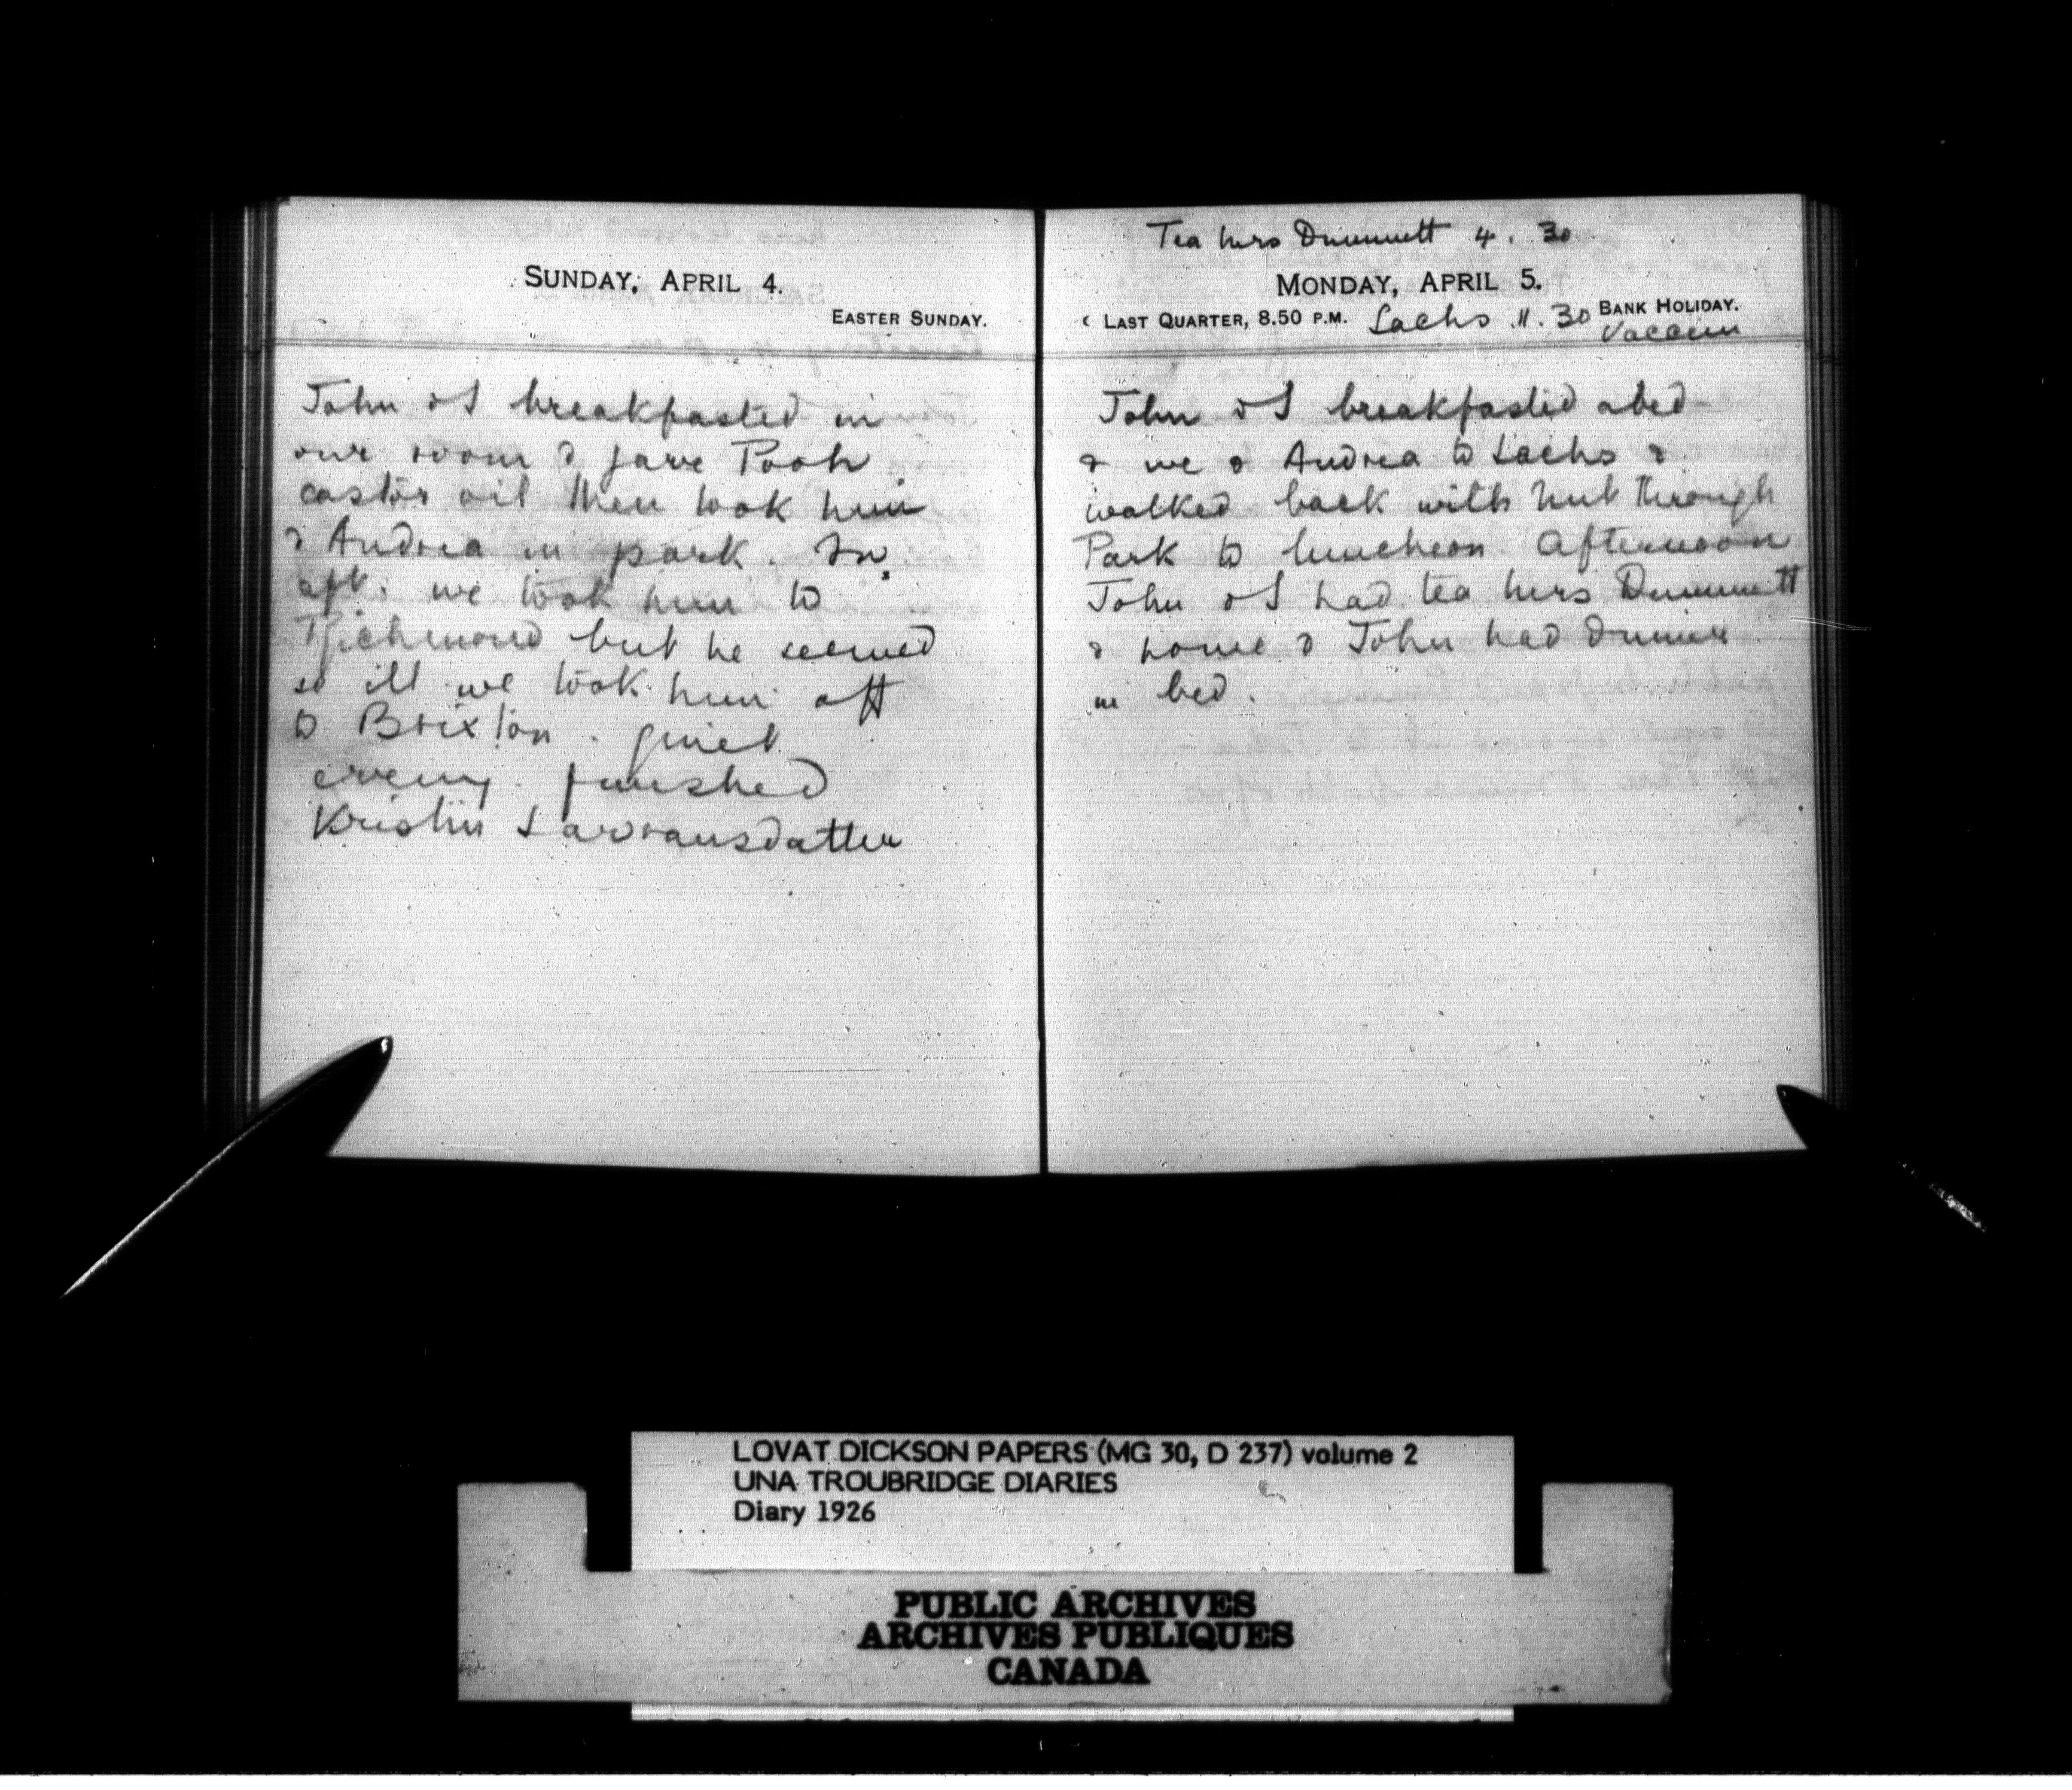 SUNDAY, APRIL 4.
EASTER SUNDAY.
John & I breakfasted in
our room & gave Pooh
castor oil then took him
& Andrea in park. In
aft. we took him to
Richmond but he seemed
so ill we took him off
to Brixton. Quiet
eveng. finished
Kristin Lavransdatter
Tea Mrs Dummett 4.30
MONDAY, APRIL 5.
☾ LAST QUARTER, 8.50 P.M. Sachs 11.30 BANK HOLIDAY.
Vaccin
John & I breakfasted abed
& we & Andrea to Sachs &
walked back with Nut through
Park to luncheon. Afternoon
John & I had tea Mrs Dummett
& home & John had dinner
in bed.
LOVAT DICKSON PAPERS (MG 30, D 237) volume 2
UNA TROUBRIDGE DIARIES
Diary 1926
PUBLIC ARCHIVES
ARCHIVES PUBLIQUES
CANADA